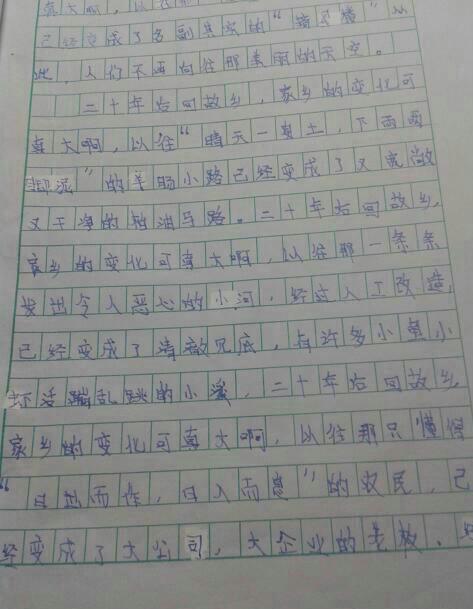 真大啊,以往
已经变成了名副其实的“
此,人们不再向往那美丽的天空。
二十年后回故乡,家乡的变化可
真大啊,以往“晴天一身土,下雨两
脚泥”的羊肠小路已经变成了又宽敞
又干净的柏油马路。二十年后回故乡,
家乡的变化可真大啊,以往那一条条
发出令人恶心的小河,经过人工改造,
已经变成了清澈见底,有许多小鱼小
虾活蹦乱跳的小溪,二十年后回故乡,
家乡的变化可真大啊,以往那只懂得
“日出而作,日入而息”的农民,已
经变成了大公司,大企业的老板。